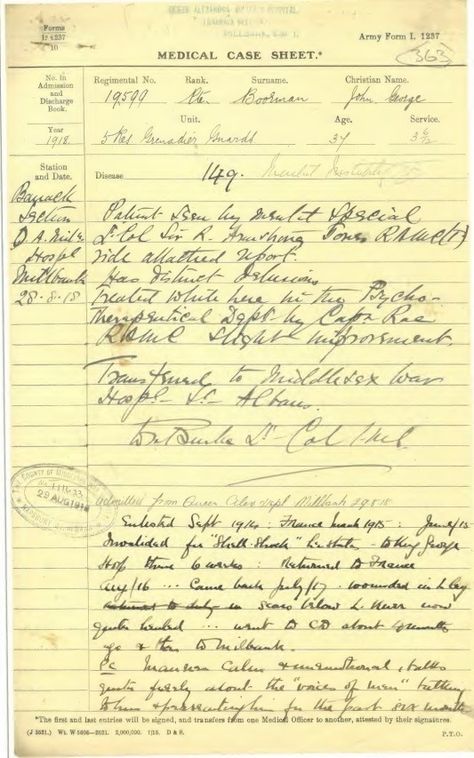 QUEEN ALEXANDRA MILITARY HOSPITAL
MILLBANK, S.W. 1.
Forms
I 1237
10
Army Form I. 1237
363
MEDICAL CASE SHEET.*
No. in Admission and Discharge Book.
Regimental No. Rank. Surname. Christian Name.
19599 Pte Boorman John George
Year
Unit. Age. Service.
1918. 5 Res Grenadier Guards 37 3 6/12
Station and Date.
Disease 149. Mental
Barrack
Section
Q A. Mil.
Hospl
Millbank
28-8-18
Patient seen by mental Special
Lt. Col Sir R. Armstrong Jones RAMC (T)
vide attached report.
Has distinct delusions
Treated while here in the Psycho-
therapeutical Dept by Capt Rae
RAMC Slight improvement.
Transferred to Middlesex War
Hospl - St - Albans.
Lt - Col
THE COUNTY OF MIDDLESEX
29 AUG 1918
Admitted from Queen Alex Hospl Millbank 29.8.18
Enlisted Sept 1914 : France March 1915 : June/15
Invalided for "Shell-Shock" to King George
Hosp three 6 weeks : Returned to France
Aug/16 ... Came back July/17. wounded in L leg
returned to duty scars below L. knee now
quite healed ... went to CD about 4 months
ago & then to Millbank.
Manner calm & unemotional, talks
quite freely about the "voices of men" talking
to him & persecuting him for the past six months
*The first and last entries will be signed, and transfers from one Medical Officer to another, attested by their signatures.
(J 3521.) Wt. W 2,000,000. 7/15. D & S. P.T.O.